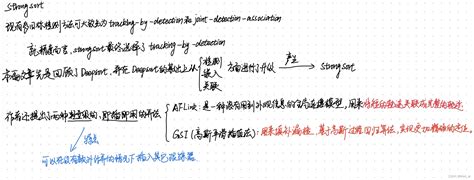 strong sort
现有多目标跟踪方法可大致分为 tracking-by-detection 和 joint-detection-association
就精度而言, strongsort 最终选择了 tracking-by-detection
本篇文章先是回顾了 Deepsort, 并在 Deepsort 的基础上从 { 检测 嵌入 关联 方面进行了升级 产生 → strongsort
作者还提出了两种 的, 即插即用的算法
AFLink: 是一种没有用到外观信息的全局连接模型, 用来将短的轨迹关联成完整的轨迹.
GSI (高斯平滑插值法): 用来填补漏检, 基于高斯过程回归算法, 实现更加精确的定位.
特点
可以在没有额外 的情况下插入其它跟踪器